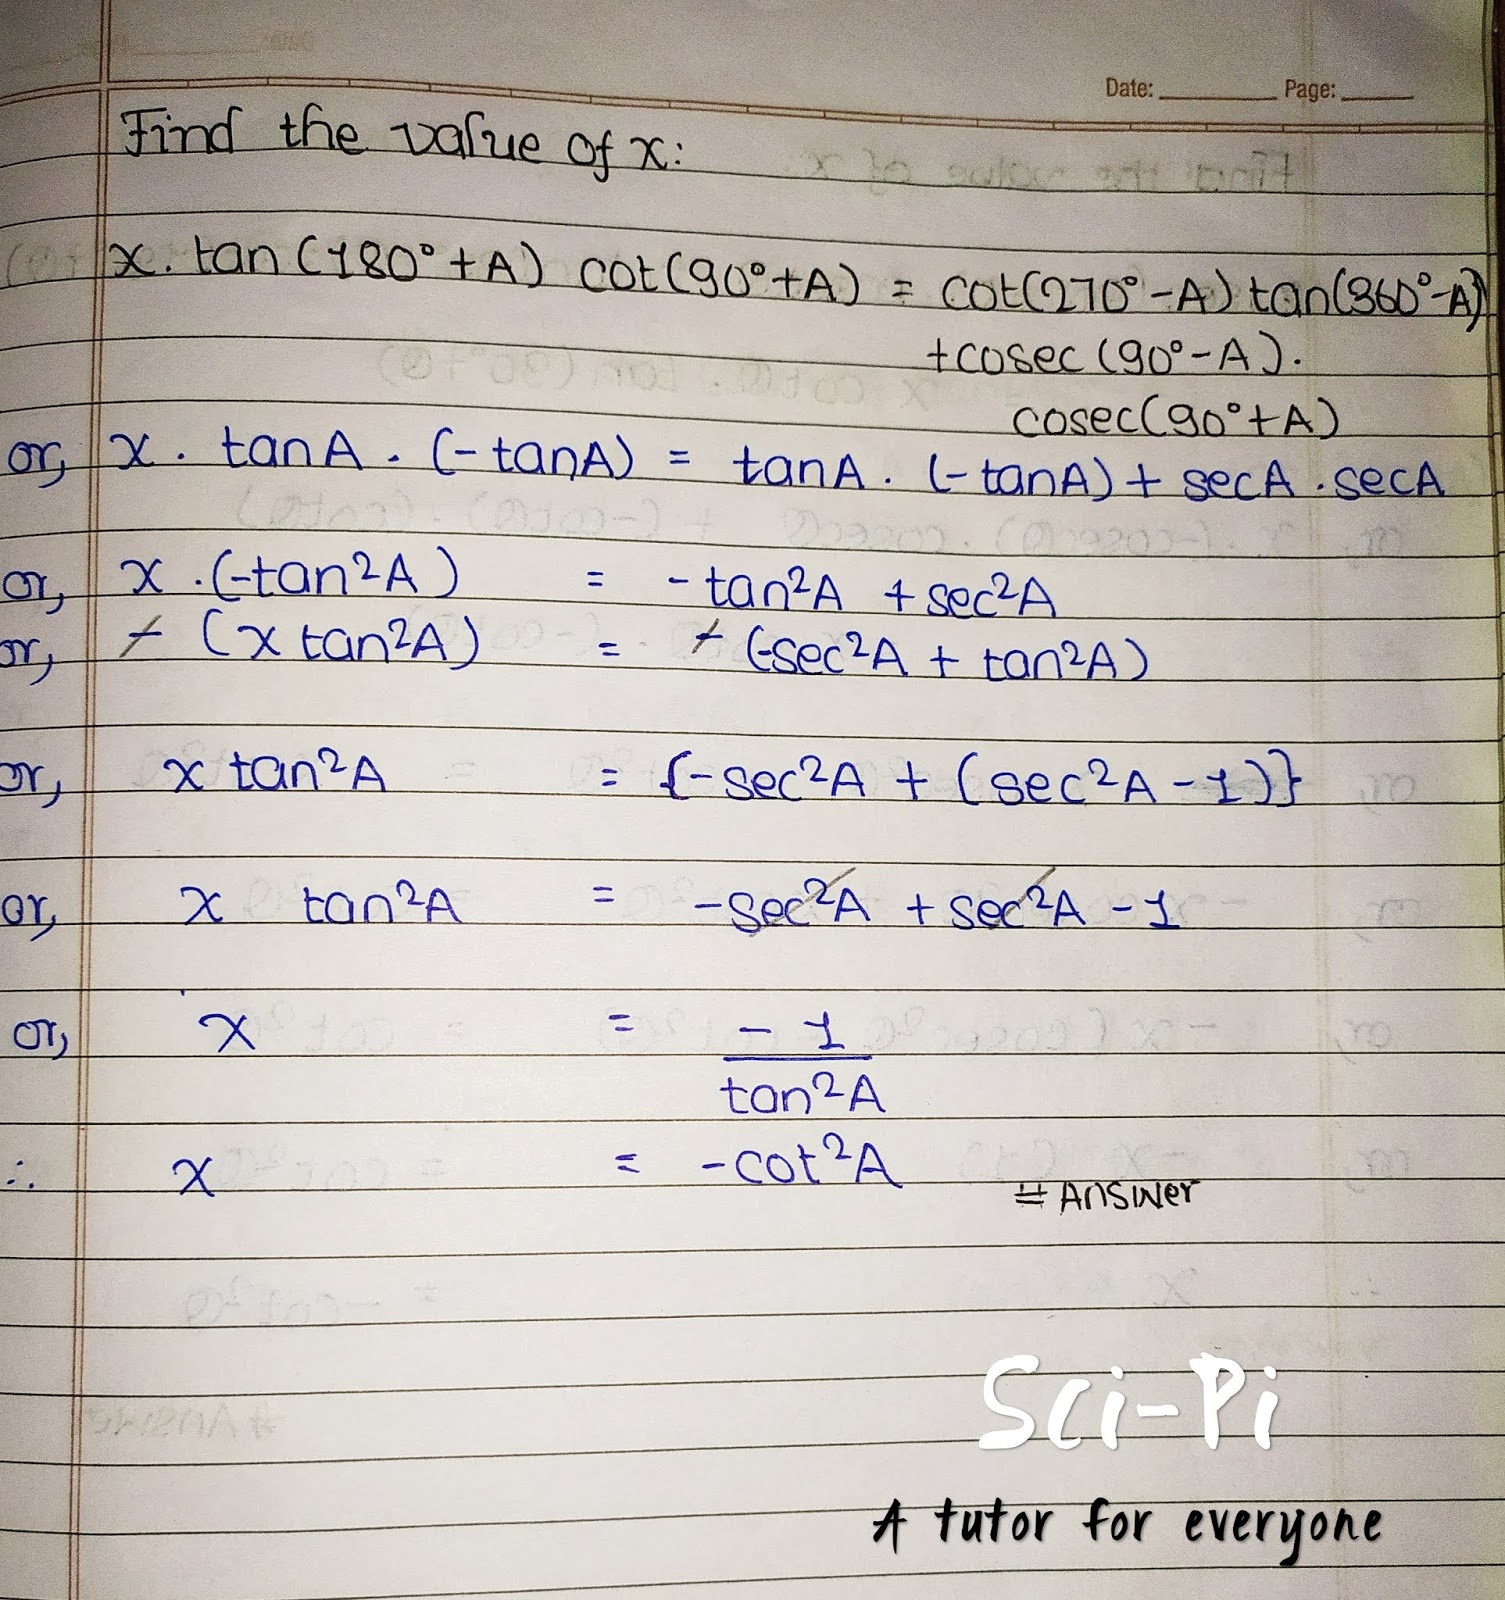 Date: ________ Page: _____
Find the value of x:
x. tan(180°+A) cot(90°+A) = cot(270°-A) tan(360°-A)
+cosec(90°-A).
cosec(90°+A)
or, x . tanA . (-tanA) = tanA . (-tanA) + secA . secA
or, x .(-tan²A) = -tan²A + sec²A
or, - (x tan²A) = - (-sec²A + tan²A)
or, x tan²A = {-sec²A + (sec²A - 1)}
or, x tan²A = -sec²A + sec²A - 1
or, x = - 1
tan²A
∴ x = -cot²A
# Answer
Sci-Pi
A tutor for everyone